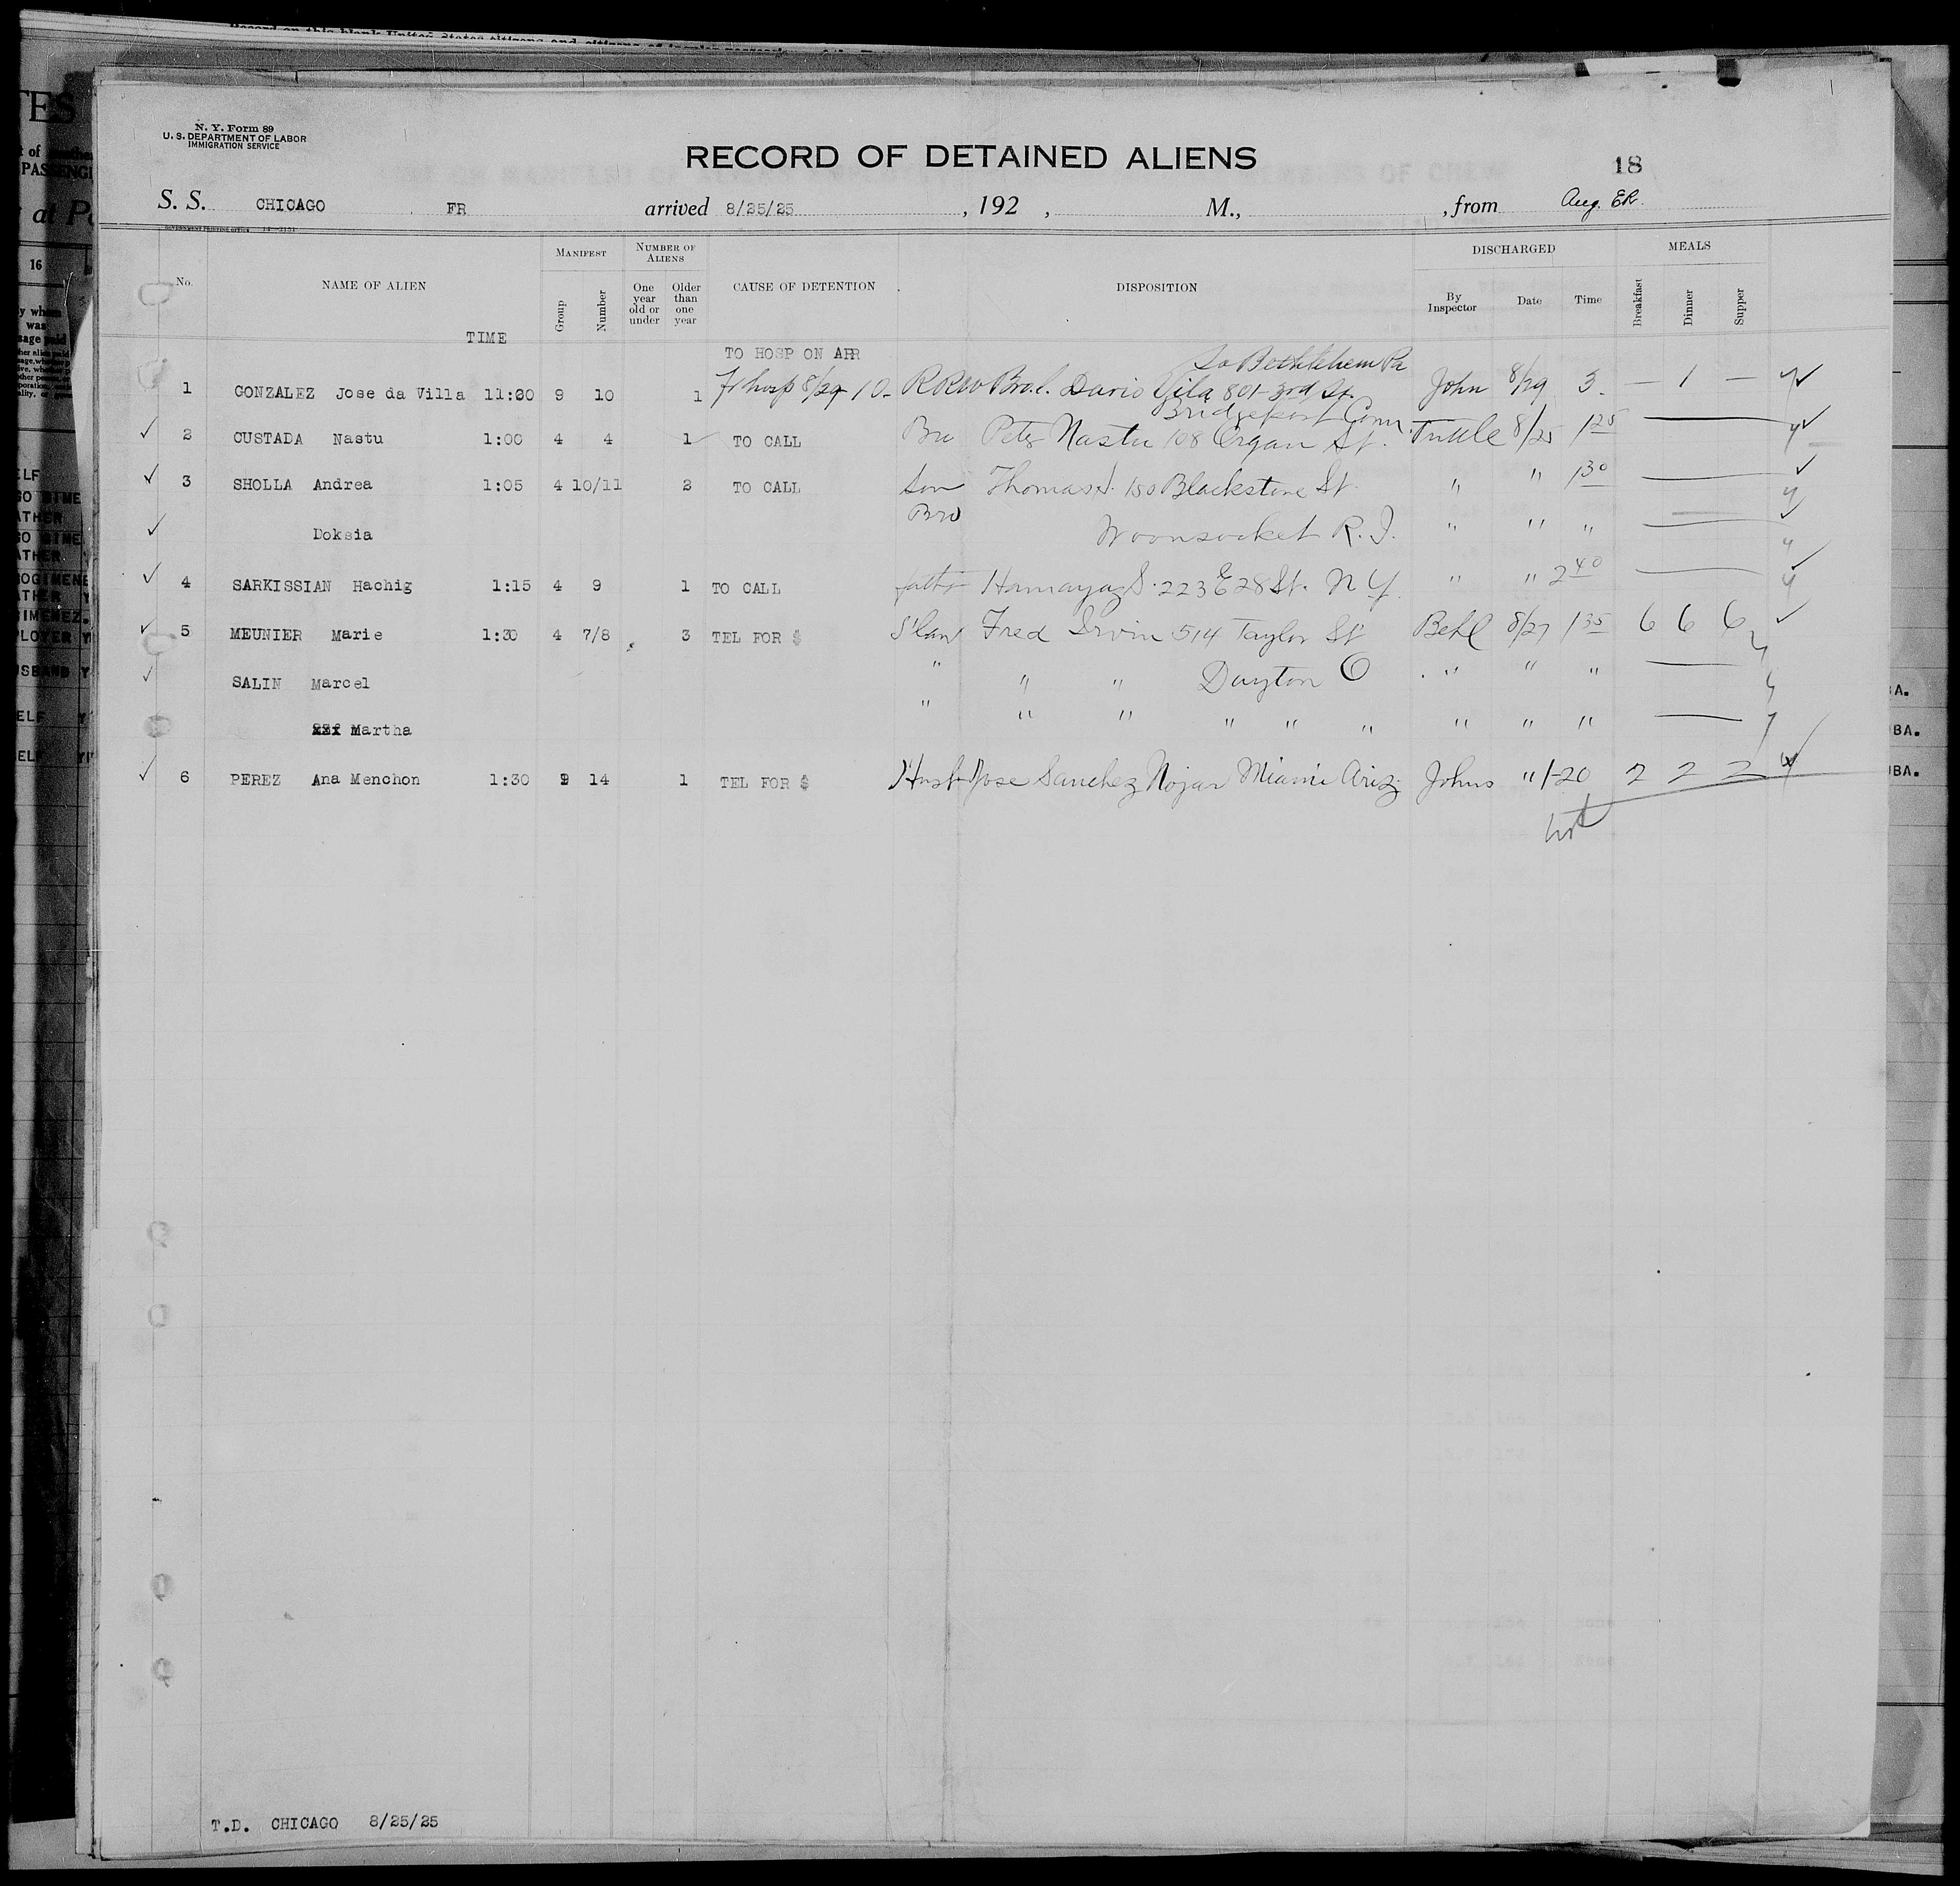 N. Y. Form 89
U. S. DEPARTMENT OF LABOR
IMMIGRATION SERVICE
RECORD OF DETAINED ALIENS
18
S. S. CHICAGO FR arrived 8/25/25, 192 , M., , from Aug. ER.
GOVERNMENT PRINTING OFFICE
No. NAME OF ALIEN TIME MANIFEST Group Number NUMBER OF ALIENS One year old or under Older than one year CAUSE OF DETENTION DISPOSITION DISCHARGED By Inspector Date Time MEALS Breakfast Dinner Supper
TO HOSP ON ARR So Bethlehem Pa
1 GONZALEZ Jose da Villa 11:20 9 10 1 Fr hosp 8/29 10- Dario Gila 801-3rd St. John 8/29 3. — 1 —
Bridgeport Conn.
2 CUSTADA Nastu 1:00 4 4 1 TO CALL Bro Peter Nastu 108 Organ St. Tuttle 8/25 1 25
3 SHOLLA Andrea 1:05 4 10/11 2 TO CALL Son Thomas S. 150 Blackstone St. " " 1 30
Bro
Doksia Woonsocket R. I. " " "
4 SARKISSIAN Hachig 1:15 4 9 1 TO CALL father Hamayag S. 223 E 28 St. N Y. " " 2 40
5 MEUNIER Marie 1:30 4 7/8 3 TEL FOR $ S'law Fred Irvin 514 Taylor St Behl 8/27 1 35 6 6 6
SALIN Marcel " " " Dayton O " " "
Martha " " " " " " " " "
6 PEREZ Ana Menchon 1:30 9 14 1 TEL FOR $ Husb Jose Sanchez Nojar Miami Ariz Johns " 1-20 2 2 2
T.D. CHICAGO 8/25/25